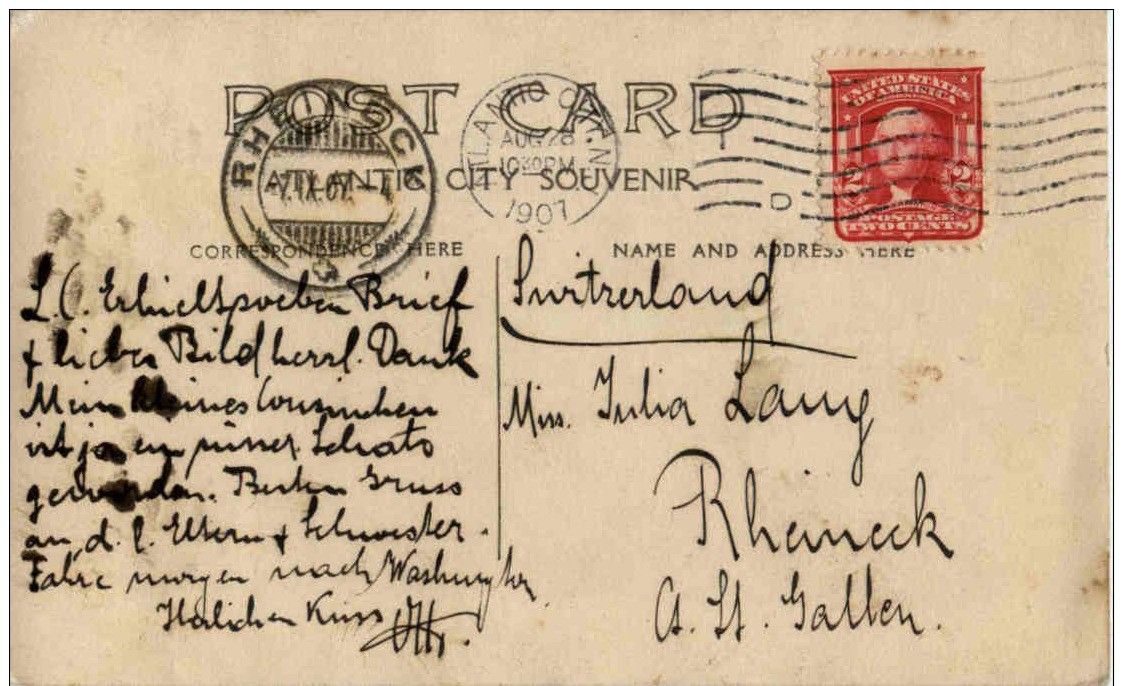 POST CARD
ATLANTIC CITY SOUVENIR
CORRESPONDENCE HERE
NAME AND ADDRESS HERE
RHEINECK
7.IX.07.
ATLANTIC CITY, N
AUG 28
1030PM
1907
UNITED STATES
OF AMERICA
2 2
POSTAGE
TWO CENTS
L. C. Erhielt soeben Brief
+ lieben Bild herzl. Dank
Mein kleines Cousinchen
ist ja ein süsser Schatz
geworden. Besten Gruss
an d. l. Eltern + Schwester.
Fahre morgen nach Washington.
Herzlichen Kuss Otto
Switzerland
Miss. Julia Lang
Rheineck
Ct. St. Gallen.